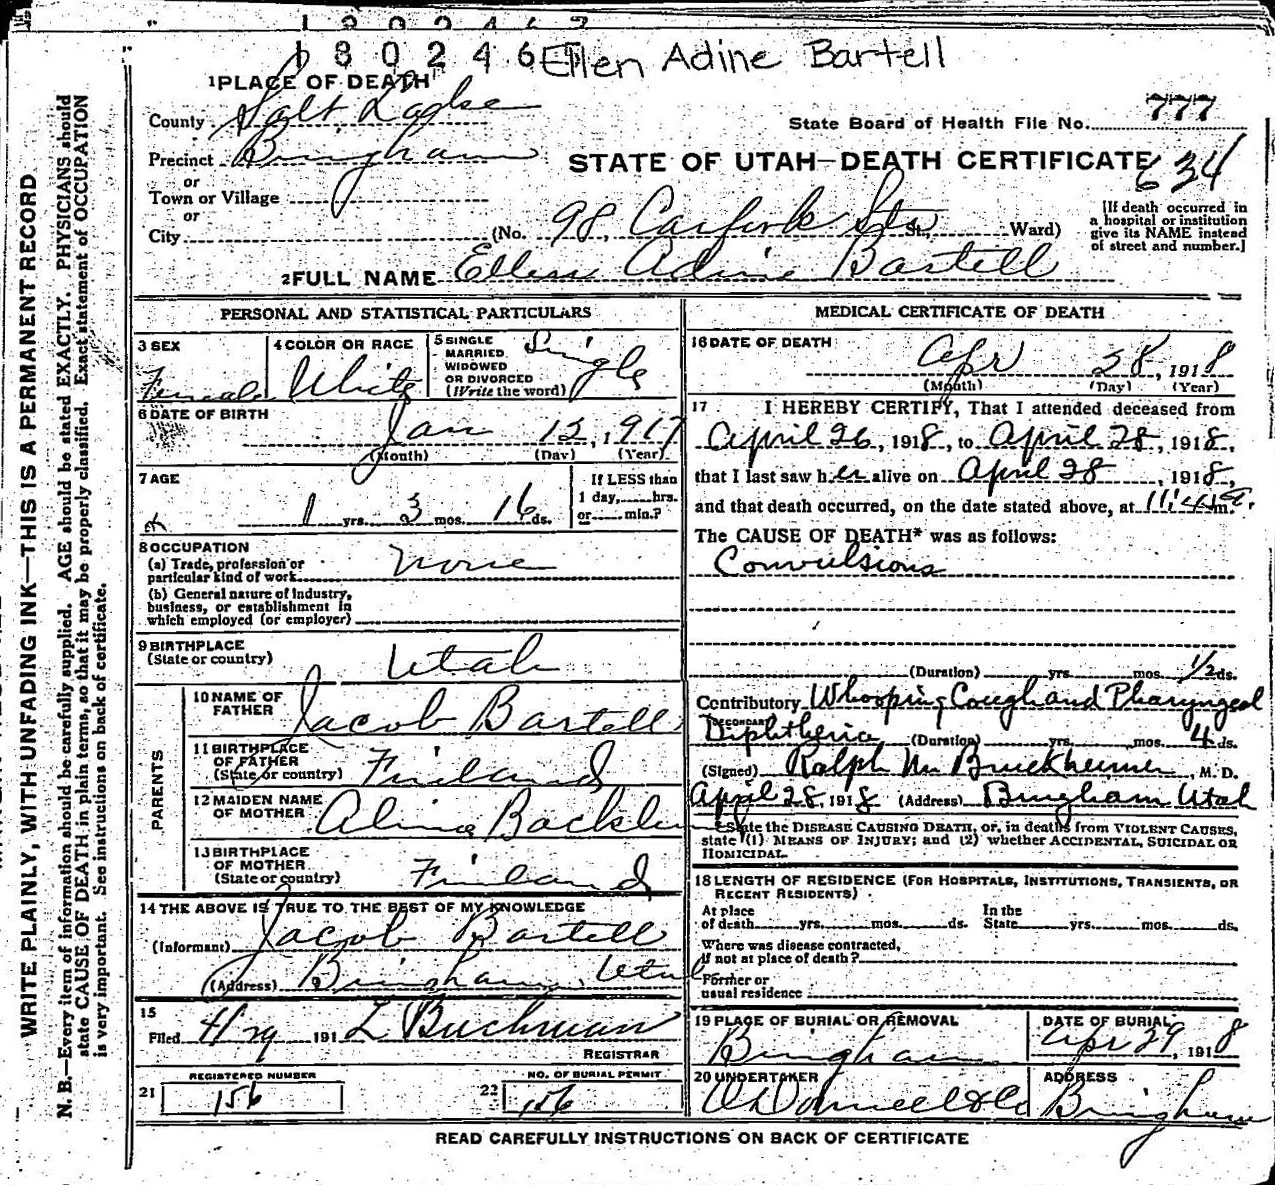 1 8 0 2 4 6 Ellen Adine Bartell
1 PLACE OF DEATH
County Salt Lake
State Board of Health File No. 777
Precinct Bingham
STATE OF UTAH—DEATH CERTIFICATE 634
or
Town or Village
or
City (No. 98, Carfork Sts St., Ward)
[If death occurred in
a hospital or institution
give its NAME instead
of street and number.]
2 FULL NAME Ellen Adine Bartell
PERSONAL AND STATISTICAL PARTICULARS
3 SEX
Female
4 COLOR OR RACE
White
5 SINGLE
MARRIED
WIDOWED
OR DIVORCED
(Write the word)
Single
6 DATE OF BIRTH
Jan 12, 1917
(Month) (Day) (Year)
7 AGE
1 yrs. 3 mos. 16 ds.
If LESS than
1 day, hrs.
or min.?
8 OCCUPATION
(a) Trade, profession or
particular kind of work None
(b) General nature of Industry,
business, or establishment in
which employed (or employer)
9 BIRTHPLACE
(State or country) Utah
PARENTS
10 NAME OF
FATHER Jacob Bartell
11 BIRTHPLACE
OF FATHER
(State or country) Finland
12 MAIDEN NAME
OF MOTHER Alina
13 BIRTHPLACE
OF MOTHER
(State or country) Finland
14 THE ABOVE IS TRUE TO THE BEST OF MY KNOWLEDGE
(Informant) Jacob Bartell
(Address) Bingham, Utah
15
Filed 4/29 191 L Buchman
REGISTRAR
REGISTERED NUMBER
21 156
NO. OF BURIAL PERMIT
22 156
MEDICAL CERTIFICATE OF DEATH
16 DATE OF DEATH
Apr 28, 1918
(Month) (Day) (Year)
17 I HEREBY CERTIFY, That I attended deceased from
April 26, 1918, to April 28, 1918,
that I last saw her alive on April 28, 1918,
and that death occurred, on the date stated above, at m.
The CAUSE OF DEATH* was as follows:
Convulsions
(Duration) yrs. mos. 1/2 ds.
Contributory Whooping Cough and Pharyngeal
SECONDARY
Diphtheria (Duration) yrs. mos. 4 ds.
(Signed) Ralph M Bruckheimer, M. D.
April 28, 1918 (Address) Bingham Utah
*State the DISEASE CAUSING DEATH, or, in deaths from VIOLENT CAUSES,
state (1) MEANS OF INJURY; and (2) whether ACCIDENTAL, SUICIDAL OR
HOMICIDAL.
18 LENGTH OF RESIDENCE (FOR HOSPITALS, INSTITUTIONS, TRANSIENTS, OR
RECENT RESIDENTS)
At place
of death yrs. mos. ds.
In the
State yrs. mos. ds.
Where was disease contracted,
if not at place of death?
Former or
usual residence
19 PLACE OF BURIAL OR REMOVAL
Bingham
DATE OF BURIAL
Apr 29, 1918
20 UNDERTAKER
O'Donnell & Co
ADDRESS
Bingham
READ CAREFULLY INSTRUCTIONS ON BACK OF CERTIFICATE
WRITE PLAINLY, WITH UNFADING INK—THIS IS A PERMANENT RECORD
N. B.—Every item of information should be carefully supplied. AGE should be stated EXACTLY. PHYSICIANS should
state CAUSE OF DEATH in plain terms, so that it may be properly classified. Exact statement of OCCUPATION
is very important. See instructions on back of certificate.